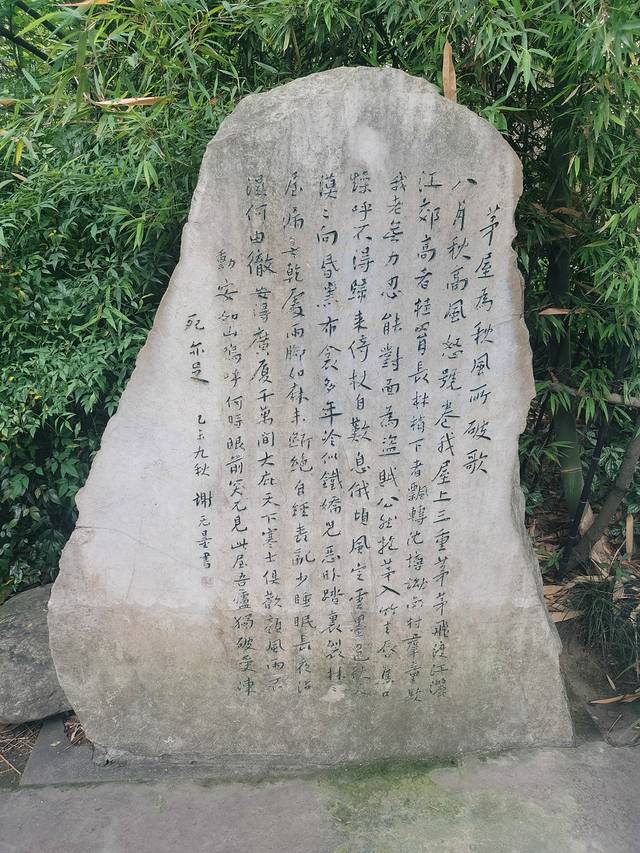 茅屋為秋風所破歌
八月秋高風怒號卷我屋上三重茅茅飛渡江灑
江郊高者挂罥長林梢下者飄轉沈塘坳南村羣童欺
我老無力忍能對面為盜賊公然抱茅入竹去唇焦口
燥呼不得歸來倚杖自歎息俄頃風定雲墨色秋天
漠〻向昏黑布衾多年冷似鐵嬌兒惡卧踏裏裂牀〻
屋漏無乾處雨腳如麻未斷絕自經喪亂少睡眠長夜沾
濕何由徹安得廣廈千萬間大庇天下寒士俱歡顏風雨不
動安如山嗚呼何時眼前突兀見此屋吾廬獨破受凍
死亦足
乙未九秋 謝无量書